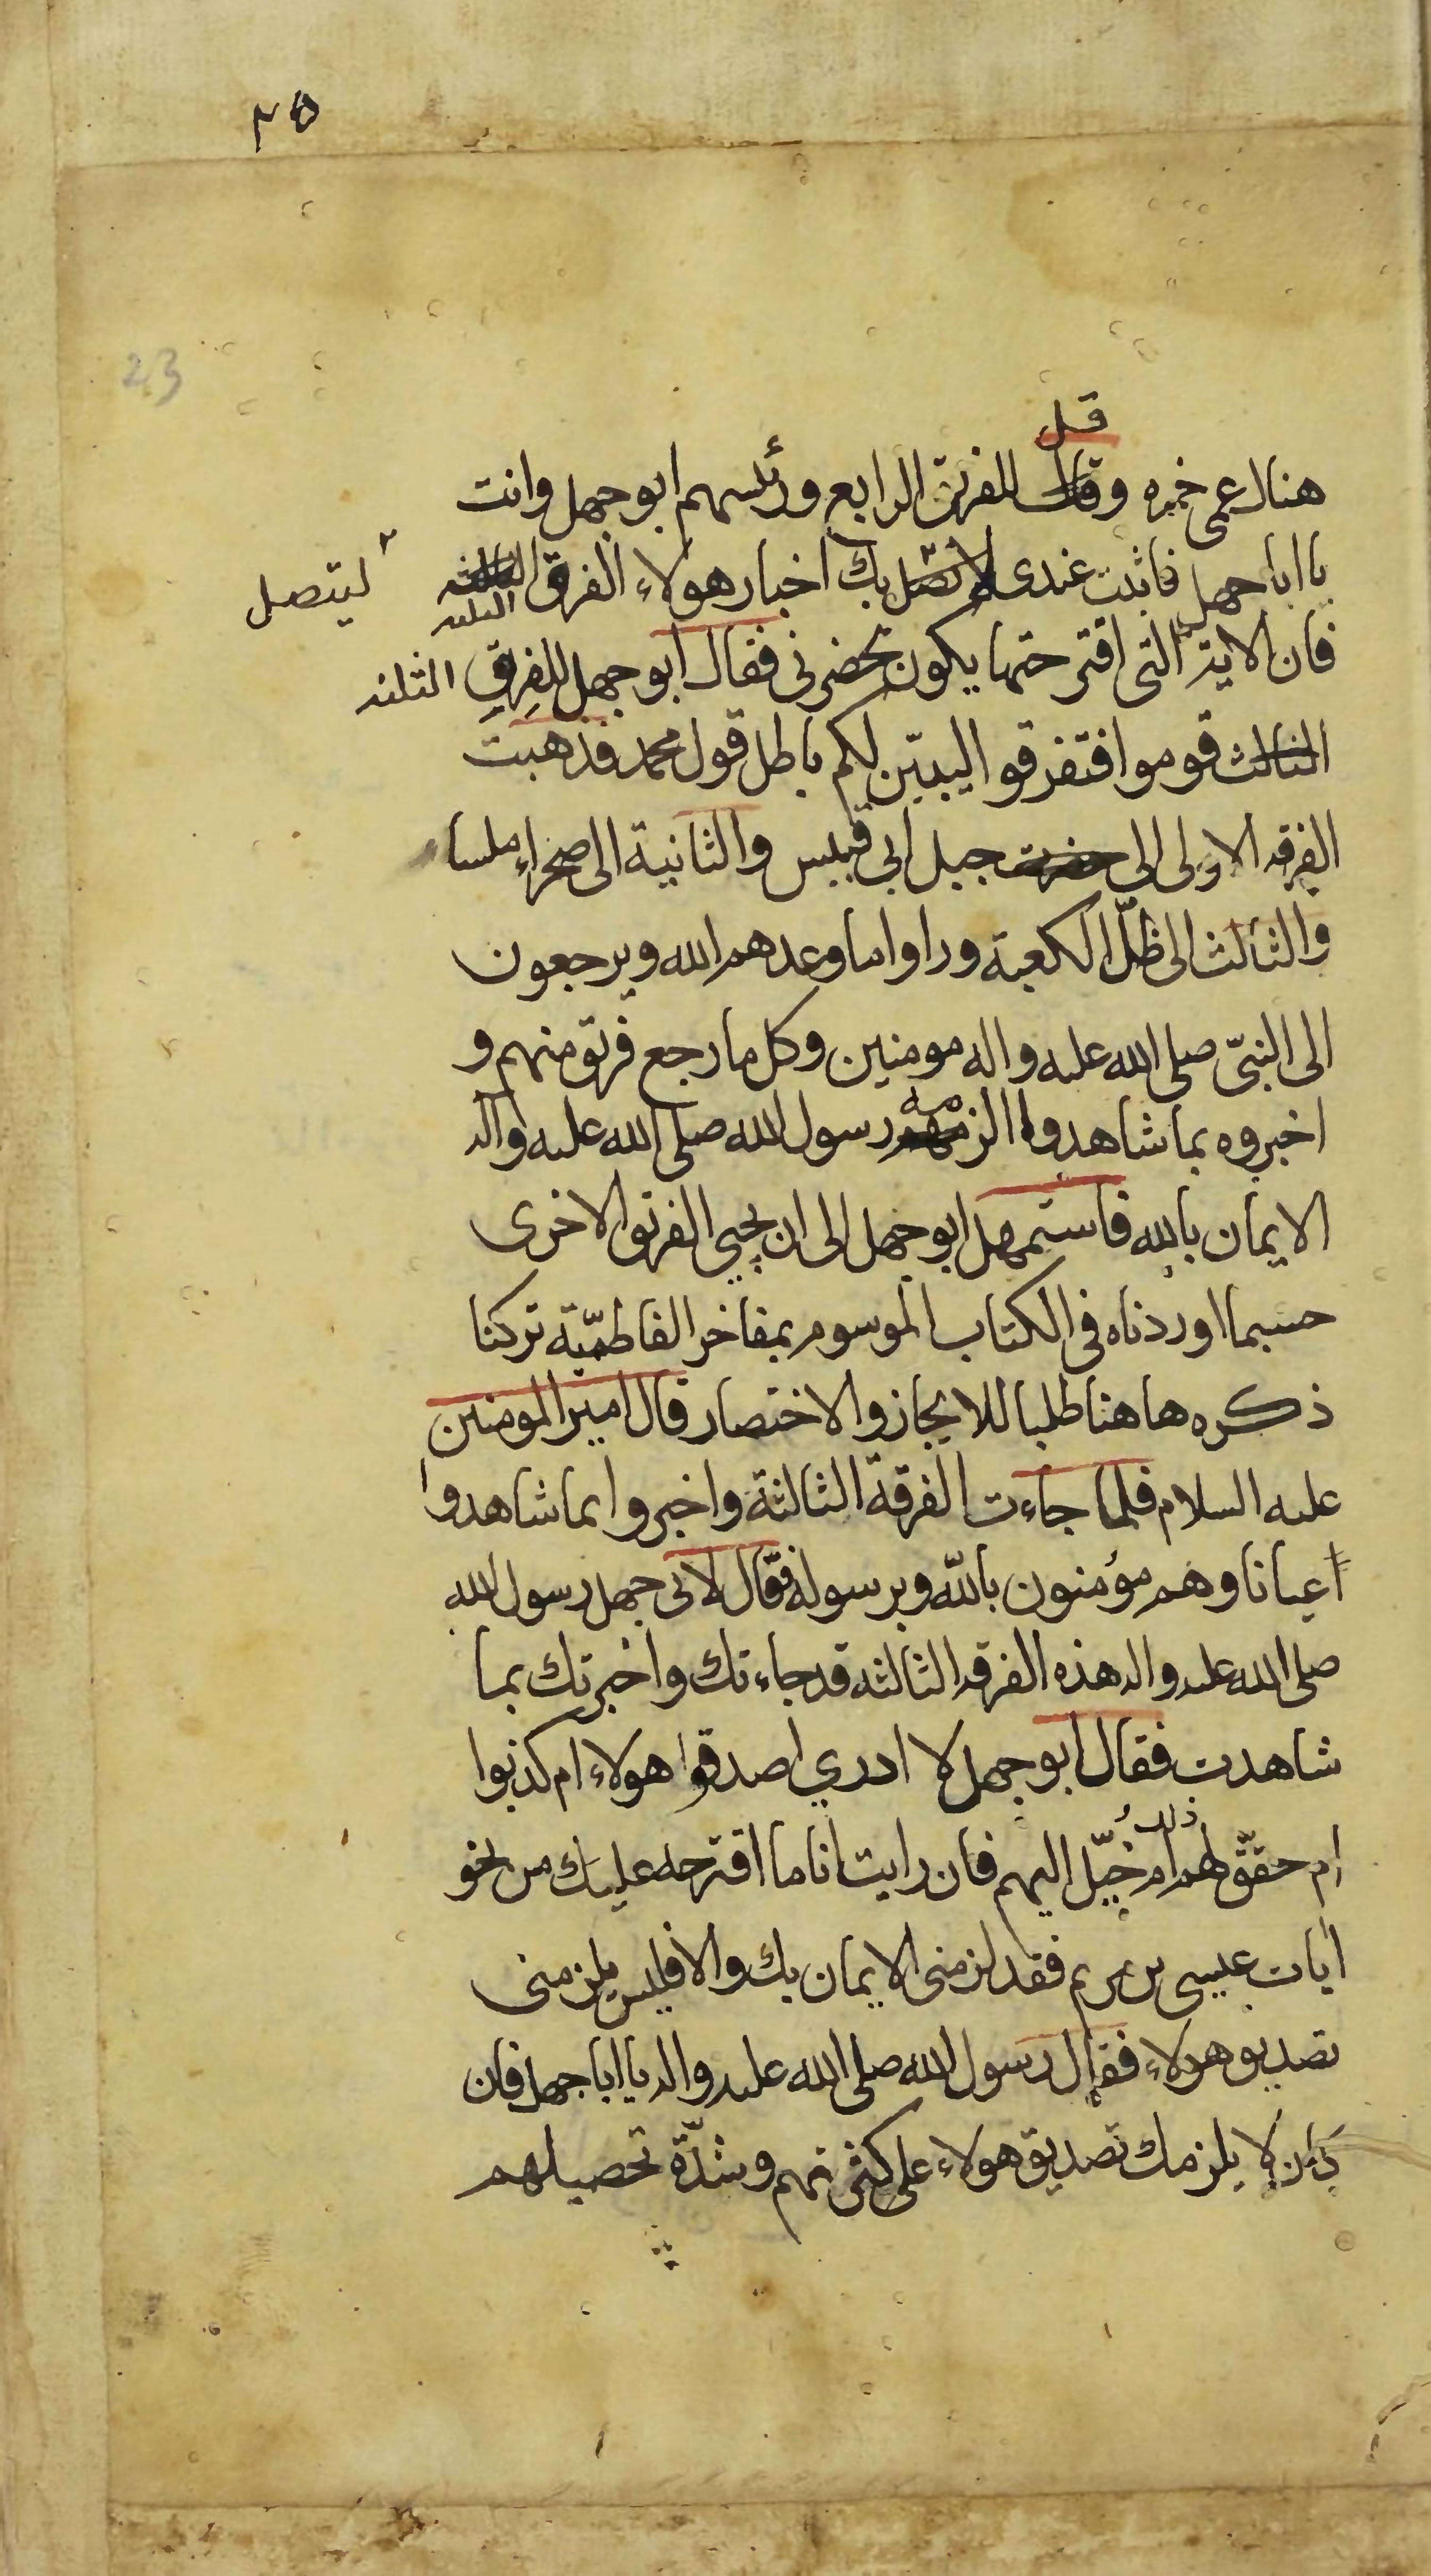 ٢٥
23
قل
هناك عمى حمزه وقال للفرقة الرابع ورئسهم ابو جهل وانت
يا ابا جهل فاثبت عندى لا تصل بك اخبار هولاء الفرق الثالثه الثلثه
ليتصل
فان الاية التى اقترحتها يكون بحضرنى فقال ابو جهل للفرق الثلثه
الثالث قوموا فتفرقوا ليبيّن لكم باطل قول محمد فذهبت
الفرقه الاولى الى حضرت جبل ابي قبيس والثانية الى صحراء ملساء
والثالث الى ظلّ الكعبة وراوا ما وعدهم الله ويرجعون
الى النبىّ صلى الله عليه واله مومنين وكل ما رجع فرقة منهم و
اخبروه بما شاهدوا الزمهم مه رسول الله صلى الله عليه واله
الايمان بالله فاستمهل ابو جهل الى ان يجيى الفرقة الاخرى
حسبما اوردناه فى الكتاب الموسوم بمفاخر الفاطميّة تركنا
ذكره هاهنا طلبا للايجاز والاختصار قال امير المومنين
عليه السلام فلما جاءت الفرقة الثالثة واخبروا بما شاهدوا
اعيانا وهم مؤمنون بالله وبرسوله فقال لابى جهل رسول الله
صلى الله عليه واله هذه الفرقه الثالثه قد جاءتك واخبرتك بما
شاهدت فقال ابو جهل لا ادري اصدقوا هولاء ام كذبوا
ام حقّق لهم ذلك ام خُيّل اليهم فان رايت انا ما اقترحه عليك من نحو
ايات عيسى بن مريم فقد لزمنى الايمان بك والا فليس يلزمنى
تصديق هولاء فقال رسول الله صلى الله عليه واله يا ابا جهل فان
كان لا يلزمك تصديق هولاء على كثرتهم وشدّة تحصيلهم